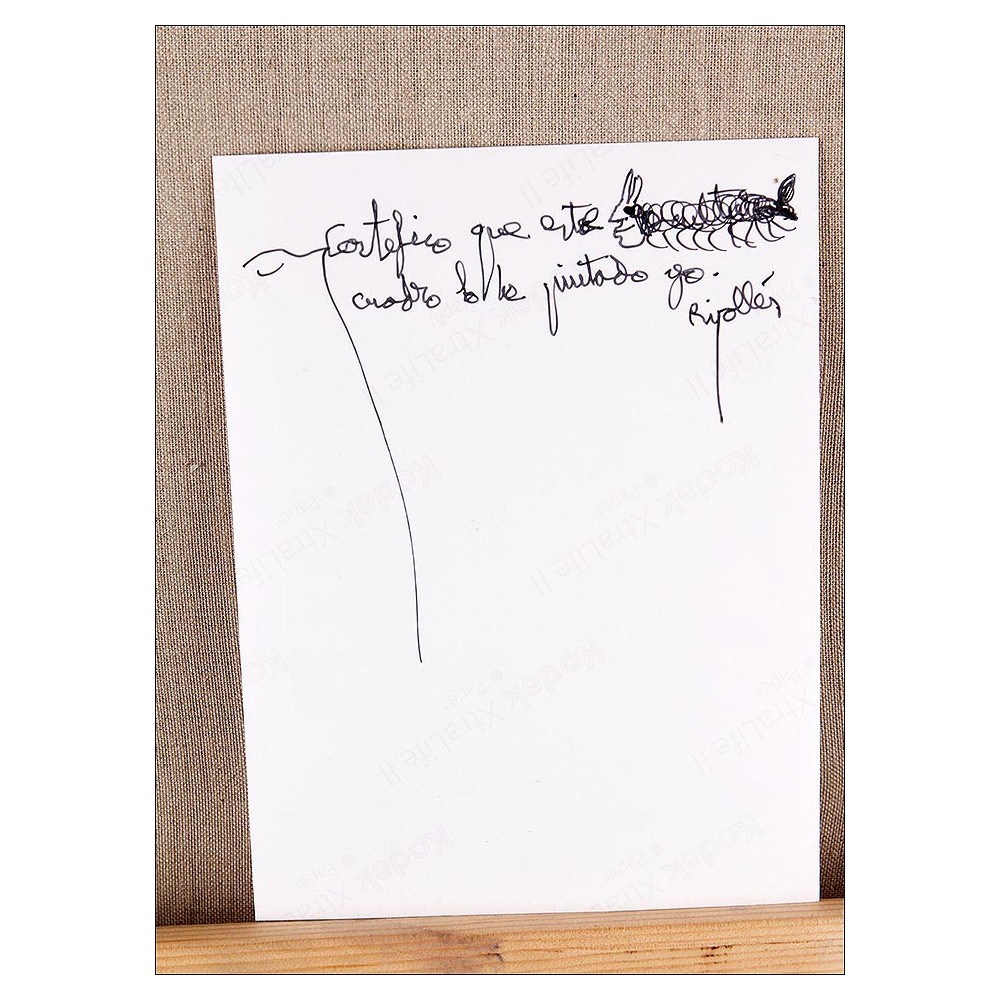 Certefico que este
cuadro lo he pintado yo.
Ripollés
Kodak XtraLife II
Paper
Kodak XtraLife II
Paper
Kodak XtraLife II
Paper
Kodak XtraLife II
Paper